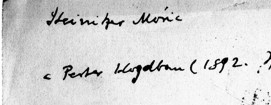 Steinitzer Móric
c Pester Lloydban (1892. )